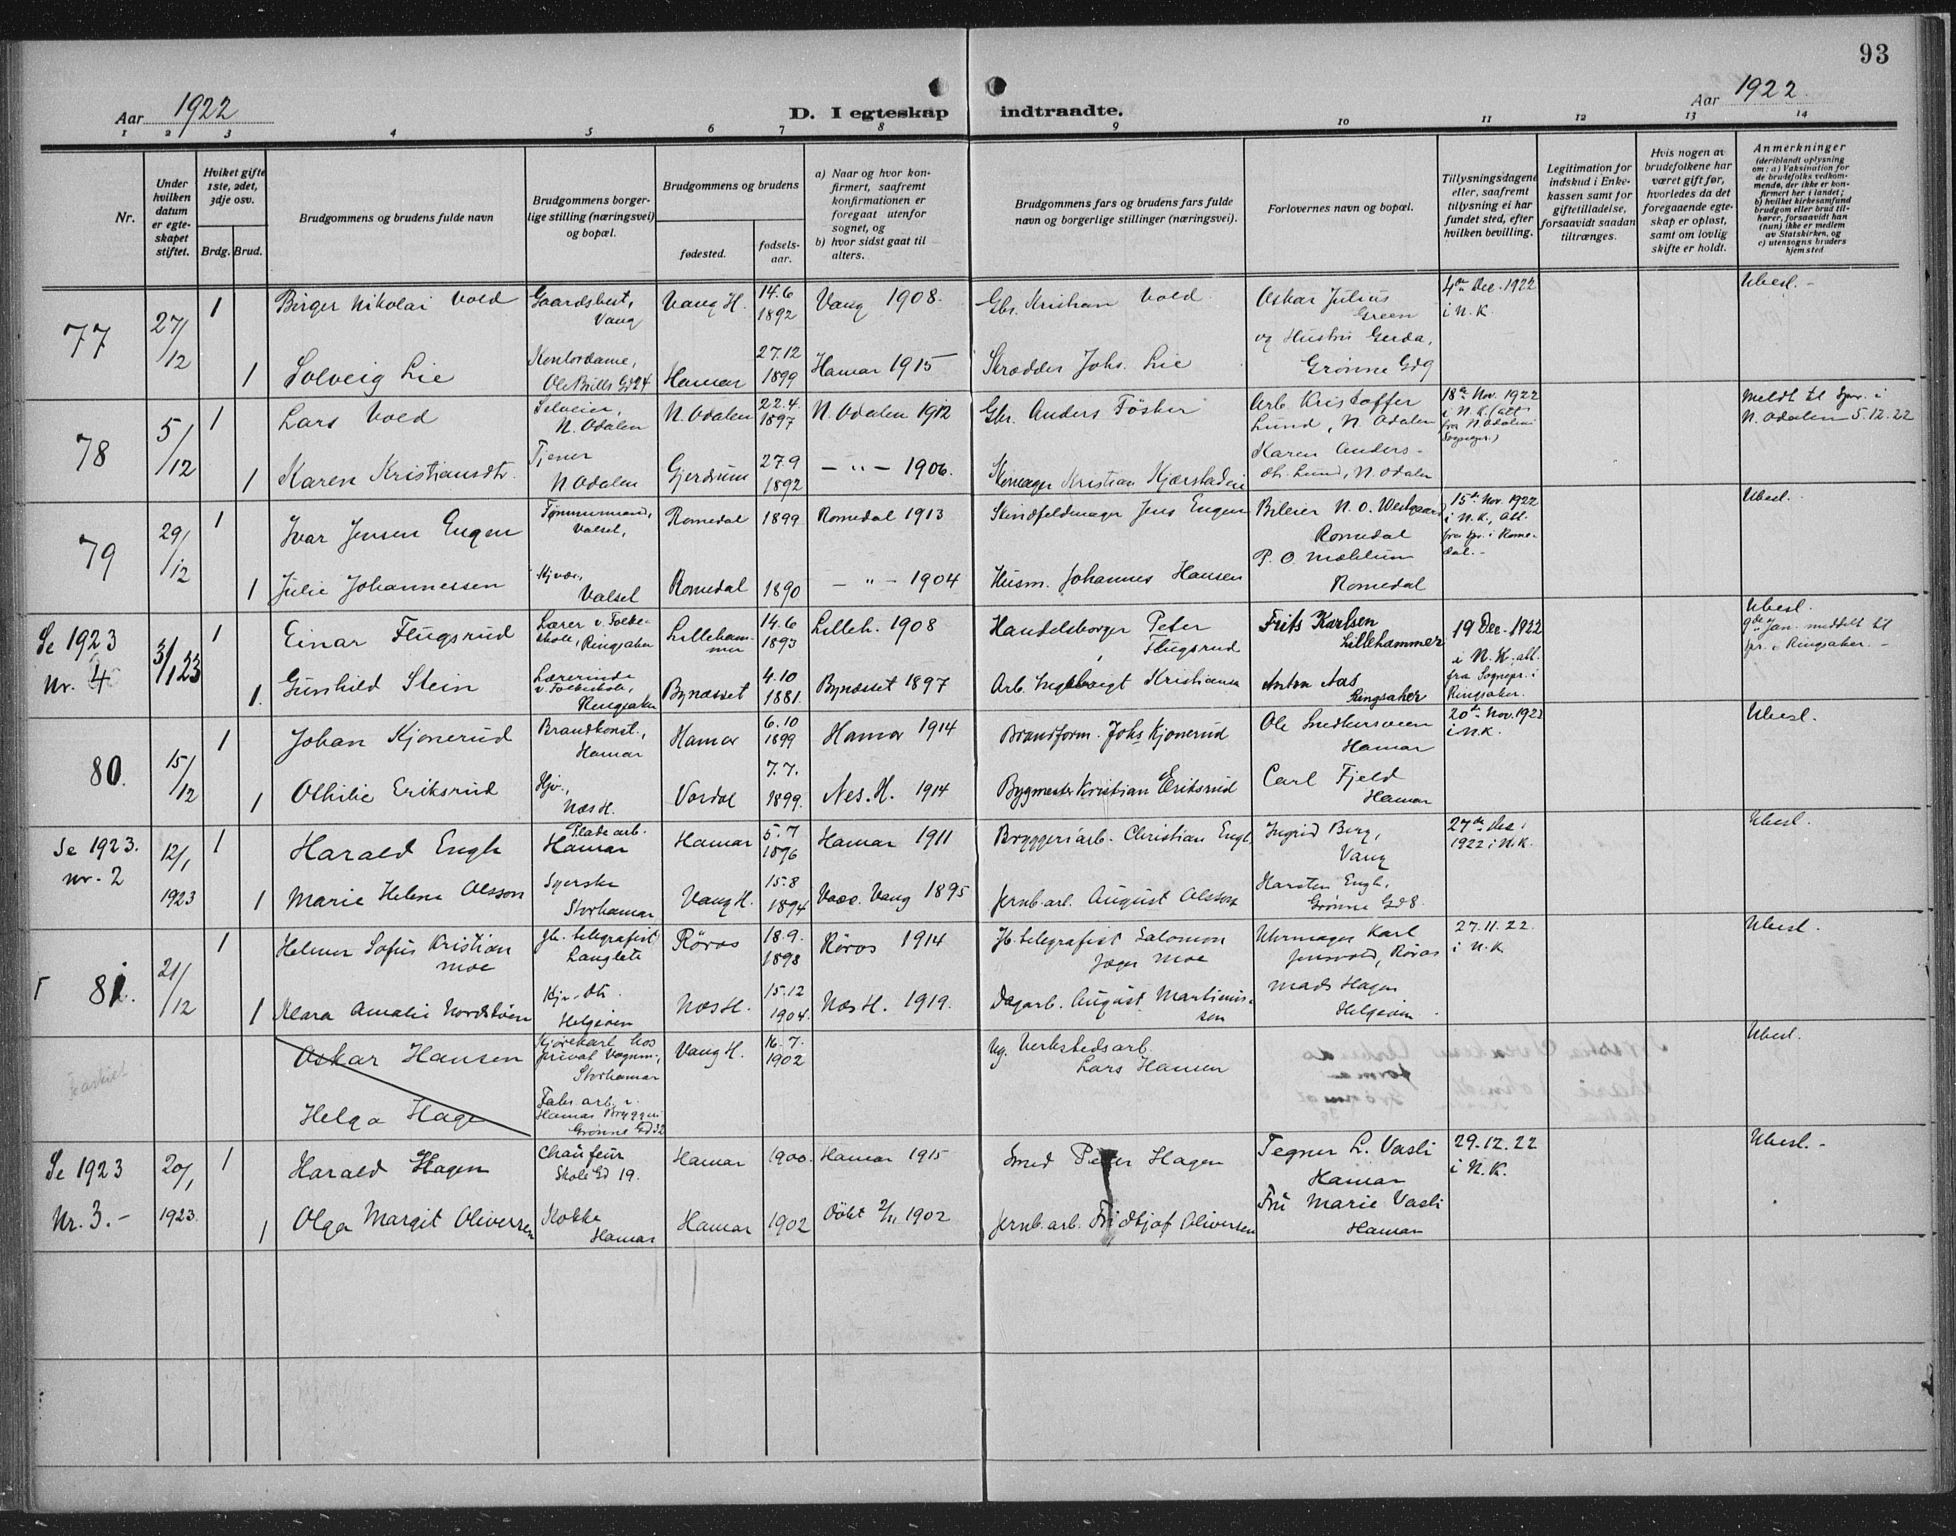 93
Aar 1922
D. I egteskap indtraadte.
Aar 1922
1 2 3 4 5 6 7 8 9 10 11 12 13 14
Nr.
Under hvilken datum er egteskapet stiftet.
Hvilket gifte 1ste, 2det, 3dje osv.
Brdg. Brud.
Brudgommens og brudens fulde navn
Brudgommens borgerlige stilling (næringsvei) og bopæl.
Brudgommens og brudens
fødested. fødselsaar.
a) Naar og hvor konfirmert, saafremt konfirmationen er foregaat utenfor sognet, og
b) hvor sidst gaat til alters.
Brudgommens fars og brudens fars fulde navn og borgerlige stillinger (næringsvei).
Forlovernes navn og bopæl.
Tillysningsdagene eller, saafremt tillysning ei har fundet sted, efter hvilken bevilling.
Legitimation for indskud i Enkekassen samt for giftetilladelse, forsaavidt saadan tiltrænges.
Hvis nogen av brudefolkene har været gift før, hvorledes da det foregaaende egteskap er opløst, samt om lovlig skifte er holdt.
Anmerkninger
(deriblandt oplysning om: a) Vaksination for de brudefolks vedkommende, der ikke er konfirmert her i landet; b) hvilket kirkesamfund brudgom eller brud tilhører, forsaavidt han (hun) ikke er medlem av Statskirken, og c) utensogns bruders hjemsted.
77 27/12 1 Birger Nikolai Vold Gaardsbest, Vang Vang H. 14.6 1892 Vang 1908. Gbr. Kristian Vold. Oskar Julius Green 4de Dec. 1922 i N.K. Ubesl. -
1 Solveig Lie Kontordame, Ole Bulls Gd 24 Hamar 27.12 1899 Hamar 1915 Skrædder Johs. Lie og Hustru Gerda, Grønne Gd 9
78 5/12 1 Lars Vold Selveier, N. Odalen N. Odalen 22.4. 1897 N. Odalen 1912 Gbr. Anders Arb. Kristoffer Lund, N. Odalen 18de Nov. 1922 i N.K. (att. fra N. Odalens Sognepr.) Meldt til Spr. i N. Odalen 5.12.22
1 Karen Kristiansdtr. Tjener N. Odalen Gjerdrum 27.9 1892 - " - 1906. Skomager Kristian Karen Andersdtr. Lund, N. Odalen
79 29/12 1 Ivar Jensen Engen Tømmermand, Valset, Romedal 1899 Romedal 1913 Skindfeldmager Jens Engen Bileier N. O. Westgaard Romedal 15de Nov. 1922 i N.K., att. fra spr. i Romedal. - Ubesl.
1 Julie Johannessen Hjvær., Valset Romedal 1890 - " - 1904 Husm. Johannes Hansen P. O. Mæhlum Romedal
Se 1923 Nr. 4 3/1 23 1 Einar Flugsrud Lærer v. Folkeskole, Ringsaker Lillehammer 14.6 1893 Lilleh. 1908 Handelsborger Peter Flugsrud Frits Karlsen Lillehammer 19 Dec. 1922 i N.K. att. fra Sognepr. i Ringsaker. Ubesl. 9de Jan. meddelt til spr. i Ringsaker. -
1. Gunhild Stein Lærerinde v. Folkeskole, Ringsaker Bynæsset 4.10 1881. Bynæsset 1897 Arb. Ingebrigt Kristiansen Anton Aas Ringsaker
80. 15/12 1 Johan Kjonerud Brandkonst., Hamar Hamar 6.10 1899 Hamar 1914 Brandform. Johs Kjonerud Ole Snedkersveen Hamar 20de Nov. 1922 i N.K. Ubesl.
1 Othilie Eriksrud Hjv., Næs H. Vardal 7.7. 1899. Nes. H. 1914 Bygmester Kristian Eriksrud Carl Fjeld Hamar
Se 1923. nr. 2 12/1 1923 1 Harald Engh Pladearb. Hamar Hamar 5.7 1896 Hamar 1911 Bryggeriarb. Christian Engh Ingrid Berg, Vang 27de Dec. 1922 i N.K. Ubesl.
1 Marie Helene Olsson Syerske Storhamar Vang H. 15.8 1894 Vacc. Vang 1895 Jernb.arb. August Olsson Karsten Engh, Grønne Gd 8.
81. 21/12 1 Helmer Sofus Kristian Moe Jb. telegrafist Langlete Røros 18.9. 1898 Røros 1914 Jb. telegrafist Salomon Jæger Moe Uhrmager Karl Jensvold, Røros 27.11.22. i N.K. Ubesl.
1 Klara Amalie Nordstuen Hjv. dtr. Helgøien Næs H. 15.12 1904. Næs H. 1919. Dagarb. August Martinussen Mads Hagen Helgøien
Oskar Hansen Kjørekarl hos privat Vognm., Storhamar Vang H. 16.7. 1902 Verkstedsarb. Lars Hansen Ubesl.
Helga Hagen Fabr. arb. v. Hamar Bryggeri Grønne Gd 32
Se 1923 Nr. 3. - 20/1 1923. 1 Harald Hagen Chaufeur Skole Gd 19. Hamar 1900. Hamar 1915 Smed Peter Hagen Tegner L. Vasli Hamar 29.12.22 i N.K. Ubesl. -
1 Olga Margit Oliversen Kokke Hamar Hamar 1902 Døbt 2/11 1902 Jernb.arb. Fridtjof Oliversen Fru Marie Vasli Hamar